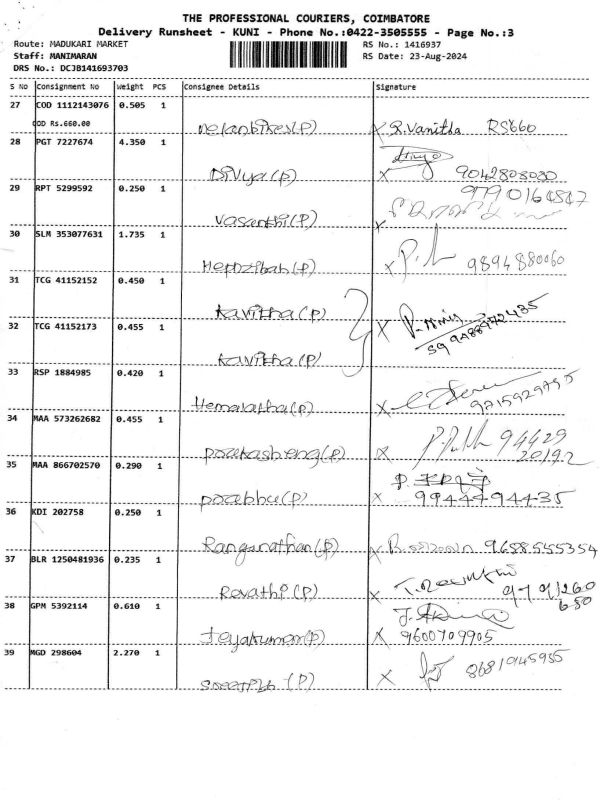 THE PROFESSIONAL COURIERS, COIMBATORE
Delivery Runsheet - KUNI - Phone No.:0422-3505555 - Page No.:3
Route: MADUKARI MARKET
RS No.: 1416937
Staff: MANIMARAN
RS Date: 23-Aug-2024
DRS No.: DCJB141693703
S No Consignment No Weight PCS Consignee Details Signature
27 COD 1112143076 0.505 1
COD Rs.660.00
(P) R.Vanitha RS660
28 PGT 7227674 4.350 1
Divya(P) 9042808080
29 RPT 5299592 0.250 1
9790164847
Vasanthi(P)
30 SLM 353077631 1.735 1
Hephzibah(P) 9894880060
31 TCG 41152152 0.450 1
Kavitha(P)
32 TCG 41152173 0.455 1
Kavitha(P)
33 RSP 1884985 0.420 1
Hemalatha(P)
34 MAA 573262682 0.455 1
(P) 94429
35 MAA 866702570 0.290 1
Prabhu(P) 99444 94435
36 KDI 202758 0.250 1
Ranganathan(P) 9658555354
37 BLR 1250481936 0.235 1
Revathi(P)
38 GPM 5392114 0.610 1
Jeyakumar(P) 9600709905
39 MGD 298604 2.270 1
(P)